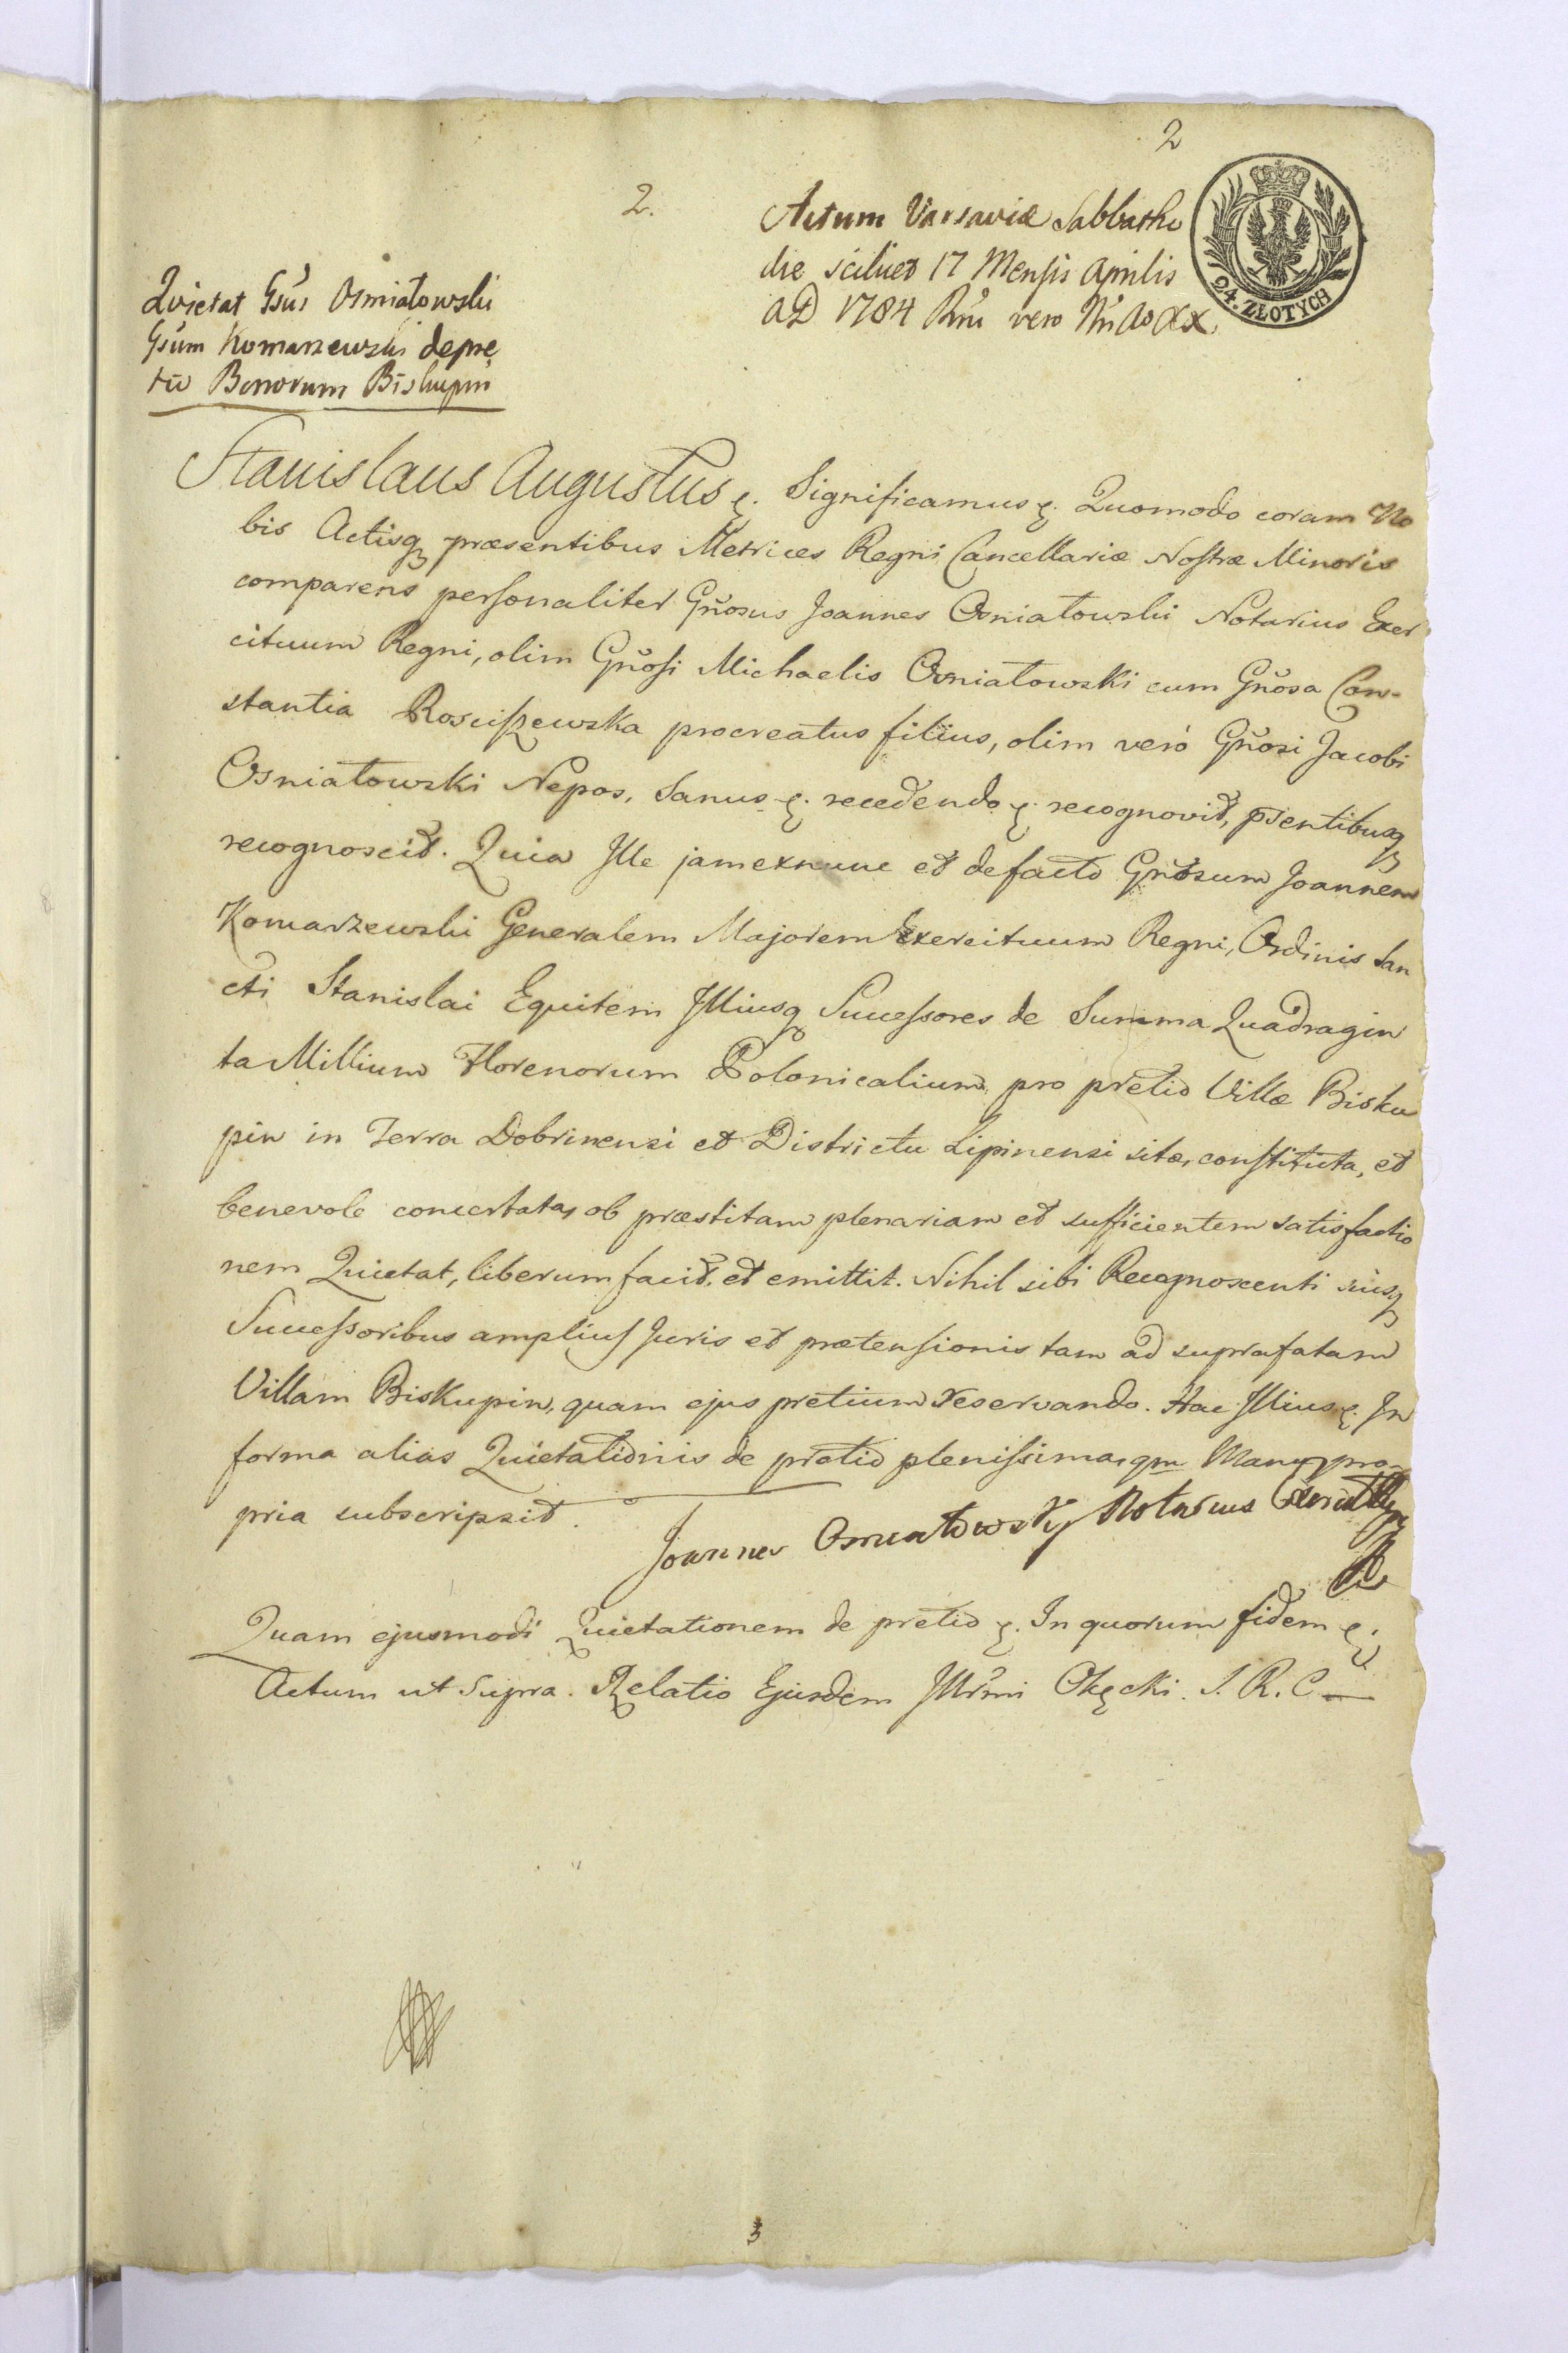 2
2.
Actum Varsaviæ Sabbatho
die scilicet 17 Mensis Aprilis
AD 1784 Rñi vero Nri Ao XX.
24. ZŁOTYCH
Quietat Gsus Osniałowski
Gsum Komarzewski de pre
tio Bonorum Biskupin
Stanislaus Augustus &. Significamus &. Quomodo coram No
bis Actisq præsentibus Metrices Regni Cancellariæ Nostræ Minoris
comparens personaliter Gñosus Joannes Osniałowski Notarius Exer
cituum Regni, olim Gñosi Michaelis Osniałowski cum Gñosa Con-
stantia Rosciszewska procreatus filius, olim verò Gñosi Jacobi
Osniałowski Nepos, Sanus &. recedendo &. recognovit, pñsentibusq
recognoscit. Quia Ille jam ex nunc et de facto Gñosum Joannem
Komarzewski Generalem Majorem Exercituum Regni, Ordinis San
cti Stanislai Equitem Illiusq Successores de Summa Quadragin
ta Millium Florenorum Polonicalium pro pretio Villæ Bisku
pin in Terra Dobrinensi et Districtu Lipinensi sitæ, constituta, et
benevole concertata, ob præstitam plenariam et sufficientem satisfactio
nem Quietat, liberum facit, et emittit. Nihil sibi Recognoscenti suisq
Successoribus amplius Juris et prætensionis tam ad suprafatam
Villam Biskupin, quam ejus pretium reservando. Hac Illius &. In
forma alias Quietationis de pretio plenissima, qm Manu pro-
pria subscripsit.
Joannes Osniałowsky Notarius
Quam ejusmodi Quietationem de pretio &. In quorum fidem &.
Actum ut Supra. Relatio Ejusdem Illrmi Okęcki. S. R. C
3